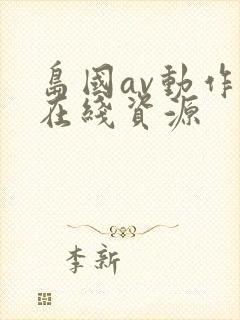 島國av動作
在綫資源
李新